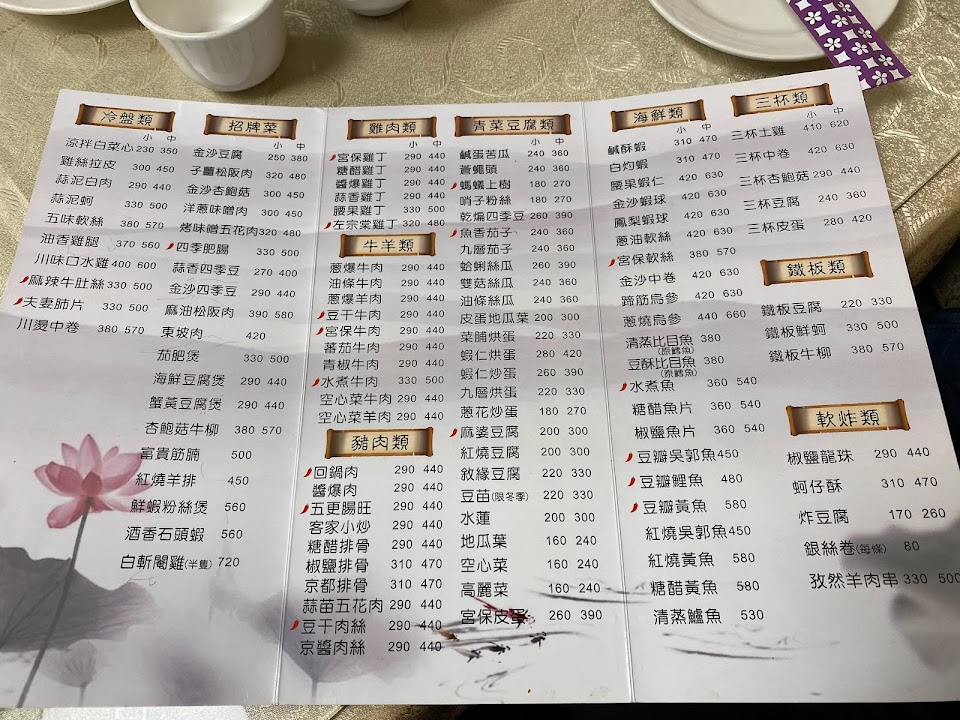 冷盤類
小 中
涼拌白菜心 230 350
雞絲拉皮 300 450
蒜泥白肉 290 440
蒜泥蚵 330 500
五味軟絲 380 570
油香雞腿 370 560
川味口水雞 400 600
麻辣牛肚絲 330 500
夫妻肺片 330 500
川燙中卷 380 570
招牌菜
小 中
金沙豆腐 250 380
子薑松阪肉 320 480
金沙杏鮑菇 300 450
洋蔥味噌肉 300 450
烤味噌五花肉 320 480
四季肥腸 330 500
蒜香四季豆 270 400
金沙四季豆 290 440
麻油松阪肉 390 580
東坡肉 420
茄肥煲 330 500
海鮮豆腐煲 290 440
蟹黃豆腐煲 290 440
杏鮑菇牛柳 380 570
富貴筋腩 500
紅燒羊排 450
鮮蝦粉絲煲 560
酒香石頭蝦 560
白斬閹雞(半隻) 720
雞肉類
小 中
宮保雞丁 290 440
糖醋雞丁 290 440
醬爆雞丁 290 440
蒜香雞丁 290 440
腰果雞丁 330 500
左宗棠雞丁 320 480
牛羊類
蔥爆牛肉 290 440
油條牛肉 290 440
蔥爆羊肉 290 440
豆干牛肉 290 440
宮保牛肉 290 440
蕃茄牛肉 290 440
青椒牛肉 290 440
水煮牛肉 330 500
空心菜牛肉 290 440
空心菜羊肉 290 440
豬肉類
回鍋肉 290 440
醬爆肉 290 440
五更腸旺 290 440
客家小炒 290 440
糖醋排骨 290 440
椒鹽排骨 310 470
京都排骨 310 470
蒜苗五花肉 290 440
豆干肉絲 290 440
京醬肉絲 290 440
青菜豆腐類
小 中
鹹蛋苦瓜 240 360
蒼蠅頭 240 360
螞蟻上樹 180 270
哨子粉絲 180 270
乾煸四季豆 260 390
魚香茄子 240 360
九層茄子 240 360
蛤蜊絲瓜 260 390
雙菇絲瓜 240 360
油條絲瓜 240 360
皮蛋地瓜葉 200 300
菜脯烘蛋 220 330
蝦仁烘蛋 280 420
蝦仁炒蛋 260 390
九層烘蛋 220 330
蔥花炒蛋 180 270
麻婆豆腐 200 300
紅燒豆腐 200 300
敘緣豆腐 220 330
豆苗(限冬季) 220 330
水蓮 200 300
地瓜葉 160 240
空心菜 160 240
高麗菜 160 240
宮保皮蛋 260 390
海鮮類
小 中
鹹酥蝦 310 470
白灼蝦 310 470
腰果蝦仁 420 630
金沙蝦球 420 630
鳳梨蝦球 420 630
蔥油軟絲 420 630
宮保軟絲 380 570
金沙中卷 420 630
蹄筋烏參 420 630
蔥燒烏參 440 660
清蒸比目魚 380
(原鱈魚)
豆酥比目魚 380
(原鱈魚)
水煮魚 360 540
糖醋魚片 360 540
椒鹽魚片 360 540
豆瓣吳郭魚 450
豆瓣鯉魚 480
豆瓣黃魚 580
紅燒吳郭魚 450
紅燒黃魚 580
糖醋黃魚 580
清蒸鱸魚 530
三杯類
小 中
三杯土雞 410 620
三杯中卷 420 630
三杯杏鮑菇 290 440
三杯豆腐 240 360
三杯皮蛋 280 420
鐵板類
鐵板豆腐 220 330
鐵板鮮蚵 330 500
鐵板牛柳 380 570
軟炸類
椒鹽龍珠 290 440
蚵仔酥 310 470
炸豆腐 170 260
銀絲卷(每條) 80
孜然羊肉串 330 500